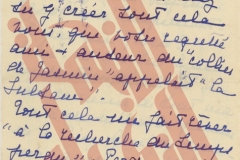 créer tout cela
pour que votre
ami + auteur du "collier
de Jasmin" appelait "la
Sultane".
Tout cela me fait rêver
"à la recherche du temps
perdu"